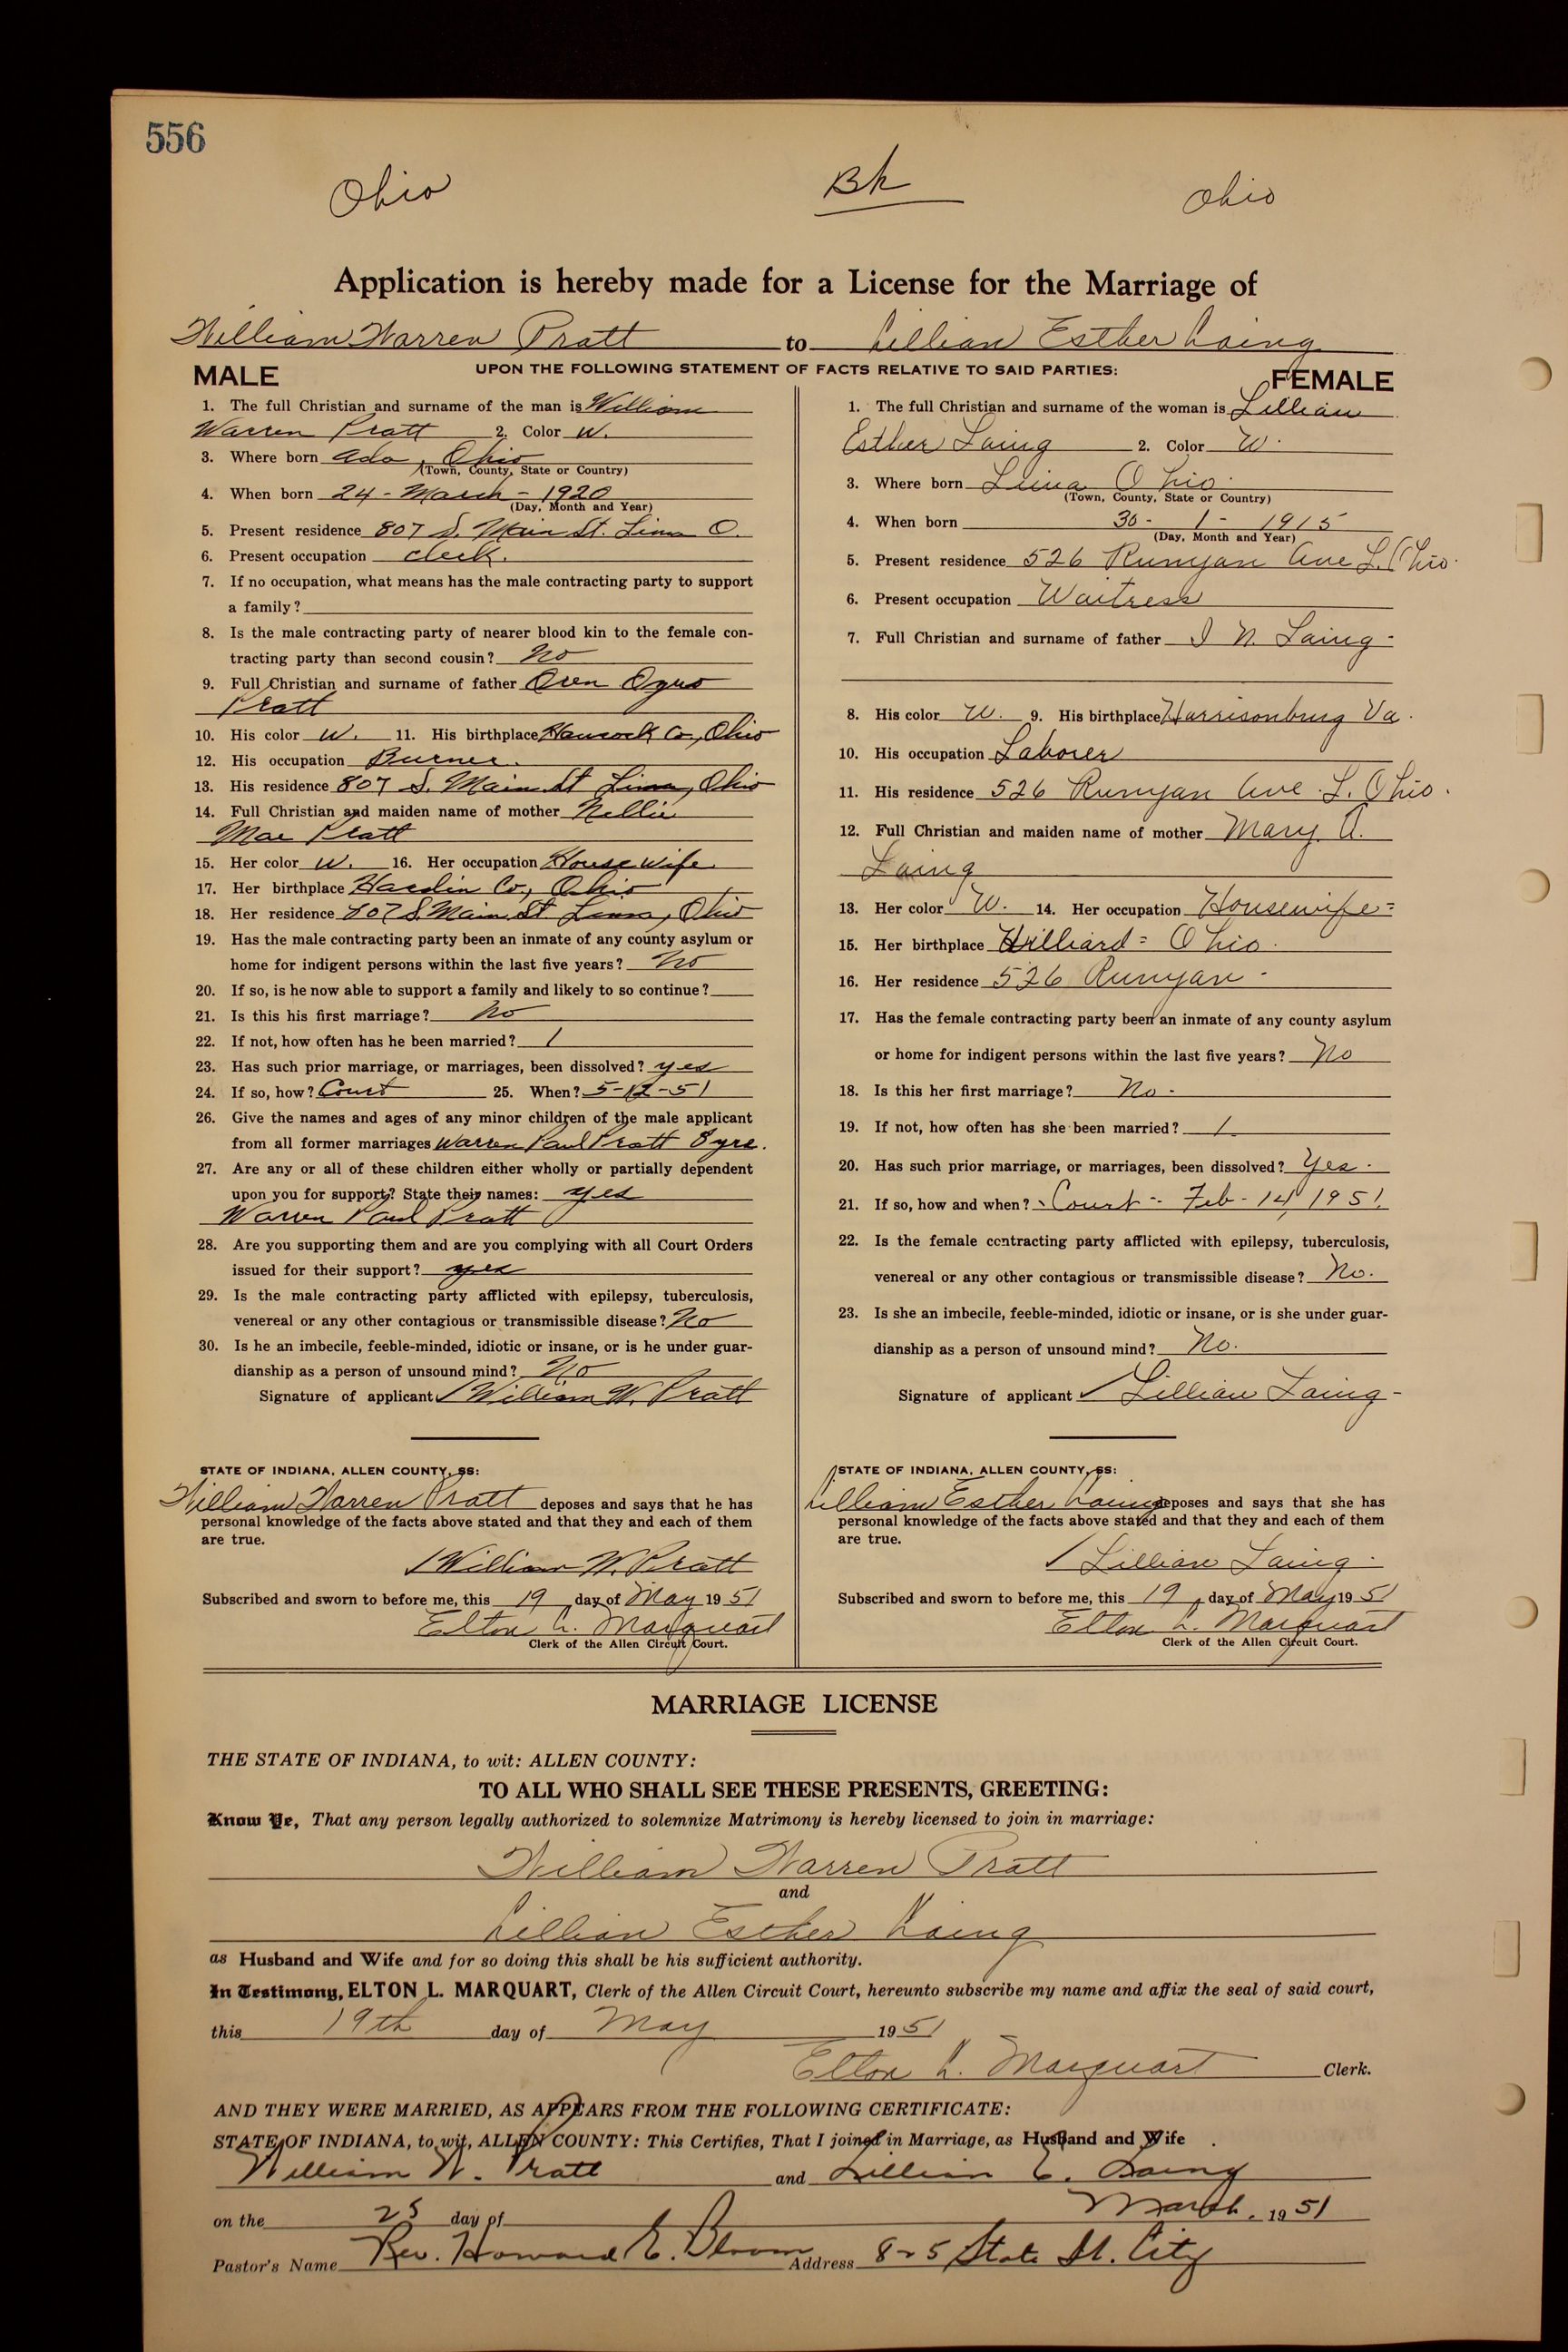 556
Ohio
Bk
Ohio
Application is hereby made for a License for the Marriage of
William Warren Pratt to Lillian Esther Laing
UPON THE FOLLOWING STATEMENT OF FACTS RELATIVE TO SAID PARTIES:
MALE
1. The full Christian and surname of the man is William
Warren Pratt 2. Color W.
3. Where born Ada, Ohio
(Town, County, State or Country)
4. When born 24 - March - 1920
(Day, Month and Year)
5. Present residence 807 S. Main St. Lima O.
6. Present occupation clerk.
7. If no occupation, what means has the male contracting party to support
a family?
8. Is the male contracting party of nearer blood kin to the female con-
tracting party than second cousin? No
9. Full Christian and surname of father Oren
Pratt
10. His color W. 11. His birthplace Hancock Co., Ohio
12. His occupation Burner.
13. His residence 807 S. Main St Lima, Ohio
14. Full Christian and maiden name of mother Nellie
Mae Pratt
15. Her color W. 16. Her occupation House wife.
17. Her birthplace Hardin Co., Ohio
18. Her residence 807 S. Main St. Lima, Ohio
19. Has the male contracting party been an inmate of any county asylum or
home for indigent persons within the last five years? No
20. If so, is he now able to support a family and likely to so continue?
21. Is this his first marriage? No
22. If not, how often has he been married? 1
23. Has such prior marriage, or marriages, been dissolved? yes
24. If so, how? Court 25. When? 5-12-51
26. Give the names and ages of any minor children of the male applicant
from all former marriages Warren Paul Pratt 8 yrs.
27. Are any or all of these children either wholly or partially dependent
upon you for support? State their names: yes
Warren Paul Pratt
28. Are you supporting them and are you complying with all Court Orders
issued for their support? yes
29. Is the male contracting party afflicted with epilepsy, tuberculosis,
venereal or any other contagious or transmissible disease? No
30. Is he an imbecile, feeble-minded, idiotic or insane, or is he under guar-
dianship as a person of unsound mind? No
Signature of applicant William W. Pratt
STATE OF INDIANA, ALLEN COUNTY, SS:
William Warren Pratt deposes and says that he has
personal knowledge of the facts above stated and that they and each of them
are true.
William W. Pratt
Subscribed and sworn to before me, this 19 day of May 1951
Elton L. Marquart
Clerk of the Allen Circuit Court.
FEMALE
1. The full Christian and surname of the woman is Lillian
Esther Laing 2. Color W.
3. Where born Lima Ohio
(Town, County, State or Country)
4. When born 30 - 1 - 1915
(Day, Month and Year)
5. Present residence 526 Runyan Ave L. Ohio.
6. Present occupation Waitress
7. Full Christian and surname of father I N. Laing -
8. His color W. 9. His birthplace Harrisonburg Va.
10. His occupation Laborer
11. His residence 526 Runyan Ave. L. Ohio.
12. Full Christian and maiden name of mother Mary A.
Laing
13. Her color W. 14. Her occupation Housewife =
15. Her birthplace Hilliard = Ohio.
16. Her residence 526 Runyan -
17. Has the female contracting party been an inmate of any county asylum
or home for indigent persons within the last five years? No
18. Is this her first marriage? No -
19. If not, how often has she been married? 1
20. Has such prior marriage, or marriages, been dissolved? Yes.
21. If so, how and when? Court - Feb - 14, 1951.
22. Is the female contracting party afflicted with epilepsy, tuberculosis,
venereal or any other contagious or transmissible disease? No.
23. Is she an imbecile, feeble-minded, idiotic or insane, or is she under guar-
dianship as a person of unsound mind? No.
Signature of applicant Lillian Laing -
STATE OF INDIANA, ALLEN COUNTY, SS:
Lilliam Esther Laing deposes and says that she has
personal knowledge of the facts above stated and that they and each of them
are true.
Lillian Laing
Subscribed and sworn to before me, this 19 day of May 1951
Elton L. Marquart
Clerk of the Allen Circuit Court.
MARRIAGE LICENSE
THE STATE OF INDIANA, to wit: ALLEN COUNTY:
TO ALL WHO SHALL SEE THESE PRESENTS, GREETING:
Know Ye, That any person legally authorized to solemnize Matrimony is hereby licensed to join in marriage:
William Warren Pratt
and
Lillian Esther Laing
as Husband and Wife and for so doing this shall be his sufficient authority.
In Testimony, ELTON L. MARQUART, Clerk of the Allen Circuit Court, hereunto subscribe my name and affix the seal of said court,
this 19th day of May 1951
Elton L. Marquart Clerk.
AND THEY WERE MARRIED, AS APPEARS FROM THE FOLLOWING CERTIFICATE:
STATE OF INDIANA, to wit, ALLEN COUNTY: This Certifies, That I joined in Marriage, as Husband and Wife
William W. Pratt and Lillian E. Laing
on the 25 day of March. 1951
Pastor's Name Rev. Howard E. Bloom Address 825 State St. City